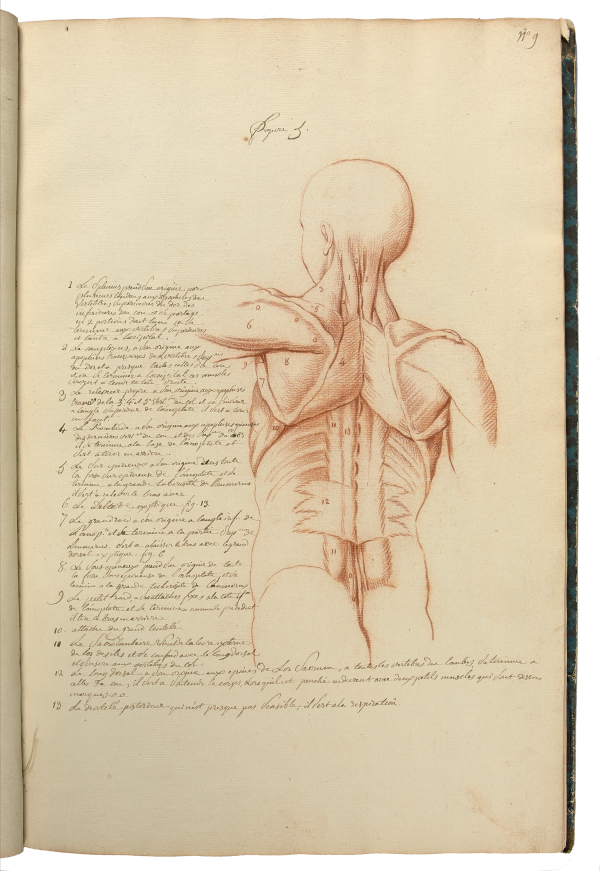 N° 9
Figure 5.
1 Le Splenius prend son origine par
plusieurs tendons aux
vertebres superieures du dos, des
inferieures du cou et se partage
en 2 portions dont l'une
termine aux vertebres superieures
et l'autre a l'occipital.
2 Le complexus, a son origine aux
apophises transverses des vertebres
du dos et a presque toutes celles du cou
et va se terminer a l'occipital. ces muscles
servent a tenir la tete droite.
3 Le releveur propre a son origine aux apophises
du col et s'insere
a l'angle superieur de l'omoplate il sert a lever
en haut.
4 Le Romboide a son origine aux apophises epineuses
des dernieres du cou et des du dos
il se termine a la base de l'omoplate et
sert a tirer en arriere.
5 Le Sur epineux a son origine dans toute
la fosse sur epineuse de l'omoplate et se
termine a la grande tuberosité de l'humerus
il sert a relever le bras avec
6 Le Deltoide expliqué fig. 13.
7 Le grand rond a son origine a l'angle inf. de
l'omop. et se termine a la partie
humerus. Sert a abaisser le bras avec le grand
dorsal expliqué fig. 6
8 Le Sous epineux prend son origine de toute
la fosse sous epineuse de l'omoplate et se
termine a la grande de l'humerus
9 Le petit rond a ses attaches fixes a la cote inf.
de l'omoplate et se termine comme le precedent
il tire le bras en arriere.
10. attache du grand dentelé.
11 Le Sacrolombaire
de l'os des iles et se confond avec le long dorsal
et s'insere aux vertebres du col.
12 Le long dorsal a son origine aux epines de l'os Sacrum, a toutes les vertebres des lombes, se termine a
celles du cou, il sert a soutenir le corps, lorsqu'il est panché en devant avec deux petits muscles qui sont dessous
marqués o.o.
13 Le dentelé posterieur qui n'est presque pas sensible, il sert a la respiration.
0
6
9
7
8
5
3
1
4
11
13
12
11